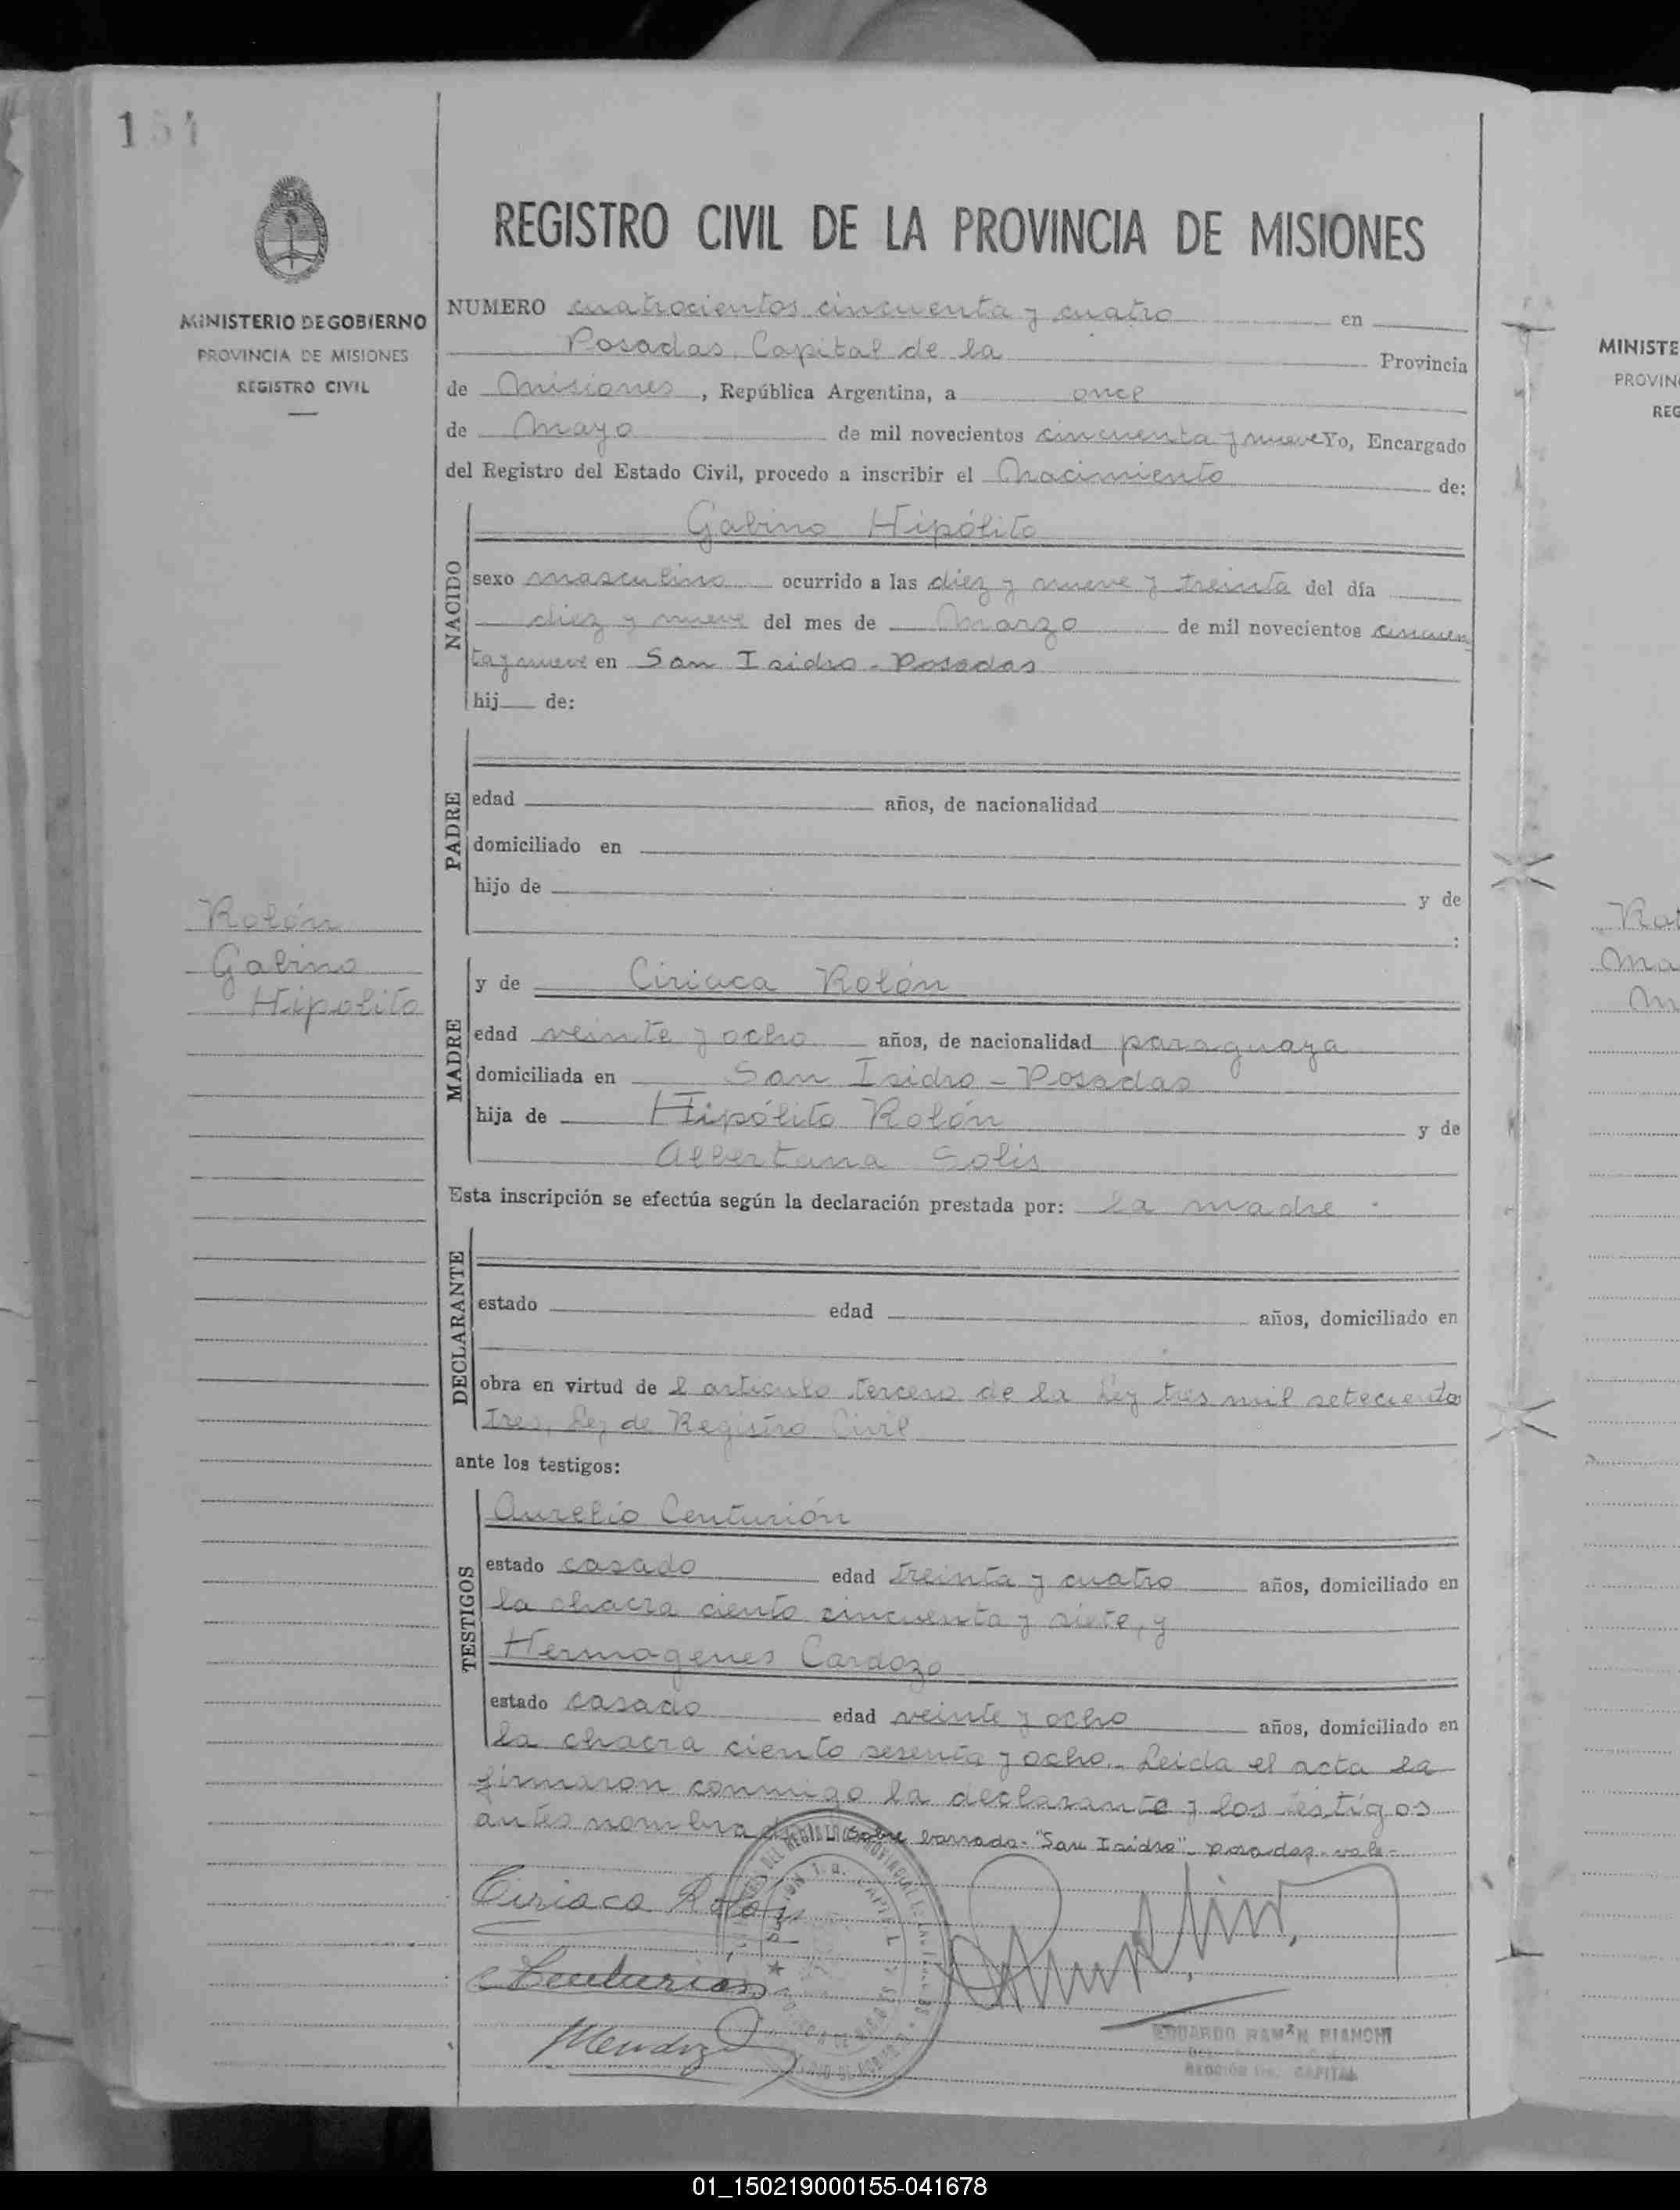 154
REGISTRO CIVIL DE LA PROVINCIA DE MISIONES
MINISTERIO DE GOBIERNO
PROVINCIA DE MISIONES
REGISTRO CIVIL
NUMERO cuatrocientos cincuenta y cuatro en
Posadas, Capital de la Provincia
de Misiones, República Argentina, a once
de Mayo de mil novecientos cincuenta y nueve Yo, Encargado
del Registro del Estado Civil, procedo a inscribir el Nacimiento de:
NACIDO
Gabino Hipólito
sexo masculino ocurrido a las diez y nueve y treinta del día
diez y nueve del mes de Marzo de mil novecientos cincuen
ta y nueve en San Isidro - Posadas
hij de:
PADRE
edad años, de nacionalidad
domiciliado en
hijo de y de
:
Rolón
Gabino
Hipolito
MADRE
y de Ciriaca Rolón
edad veinte y ocho años, de nacionalidad paraguaya
domiciliada en San Isidro - Posadas
hija de Hipólito Rolón y de
Albertana Solis
Esta inscripción se efectúa según la declaración prestada por: la madre
DECLARANTE
estado edad años, domiciliado en
obra en virtud de l artículo tercero de la Ley tres mil setecientos
tres, Ley de Registro Civil
ante los testigos:
TESTIGOS
Aurelio Centurión
estado casado edad treinta y cuatro años, domiciliado en
la chacra ciento cincuenta y siete, y
Hermogenes Cardozo
estado casado edad veinte y ocho años, domiciliado en
la chacra ciento sesenta y ocho. Leida el acta la
firmaron conmigo la declarante y los testigos
antes nombrados. Sobre borrado- "San Isidro" - Posadas - vale -
Ciriaca Rolón
Centurion
EDUARDO RAMÓN BIANCHI
SECCIÓN 1ra. CAPITAL
MINISTE
PROVIN
REG
01_150219000155-041678